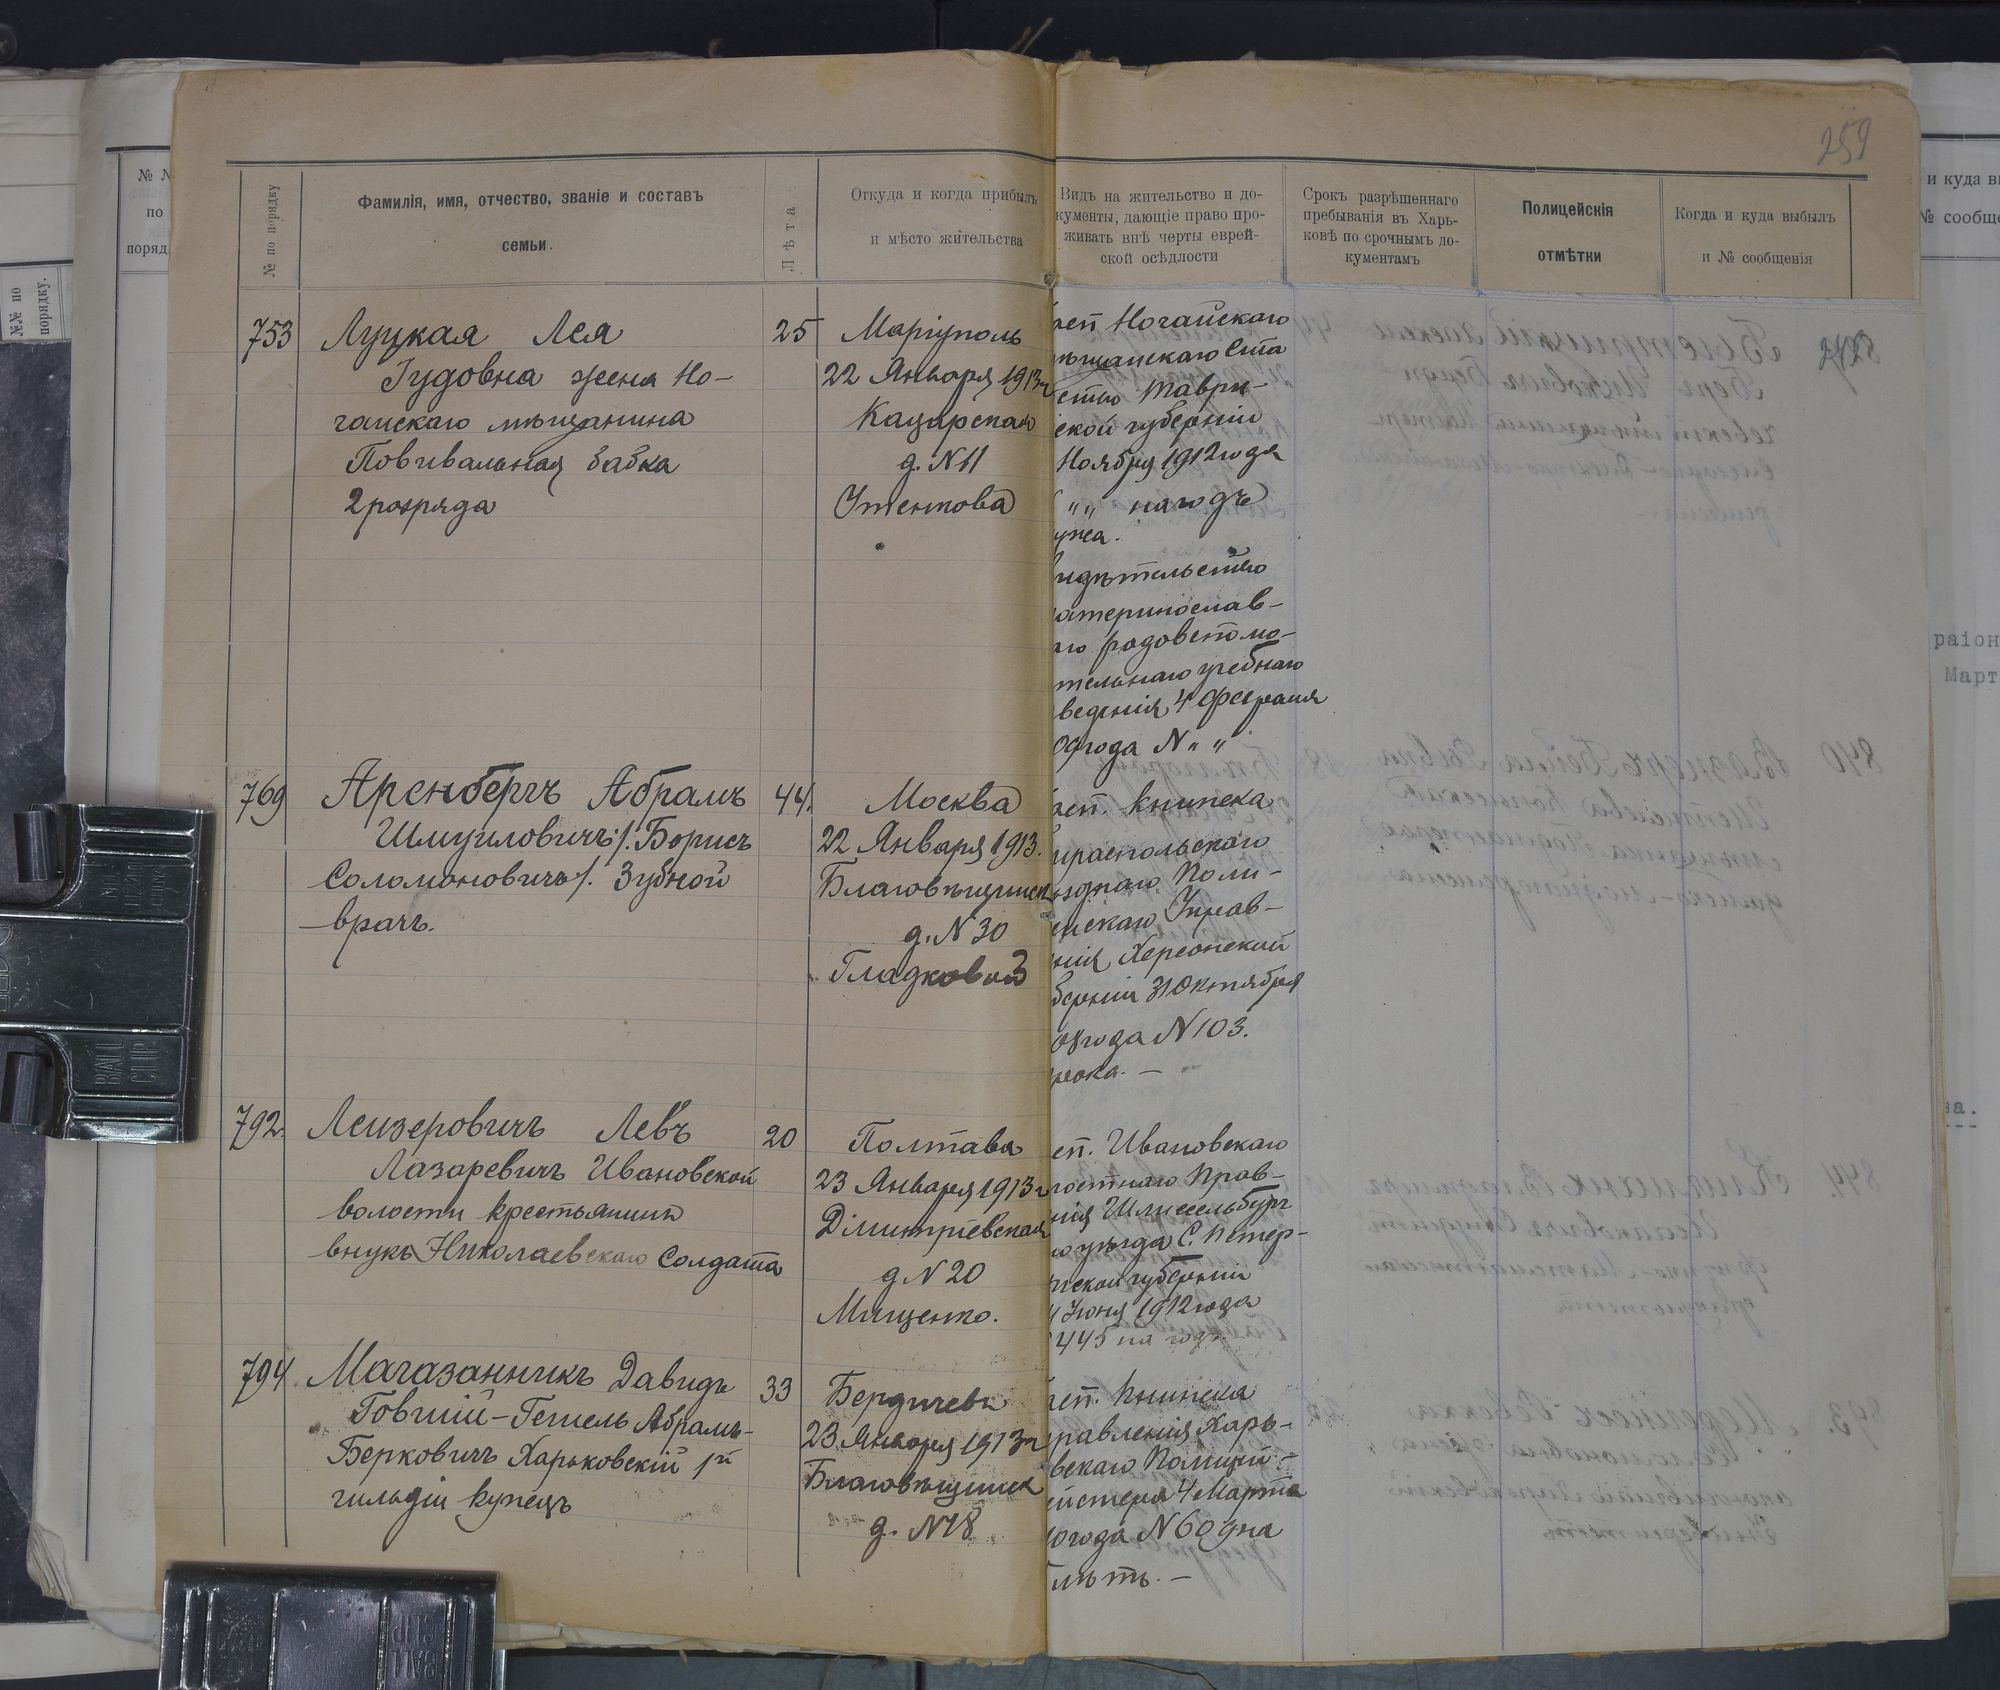 259
№ по порядку
Фамилія, имя, отчество, званіе и составъ
семьи.
Лѣта
Откуда и когда прибылъ
и мѣсто жительства
Видъ на жительство и до-
кументы, дающіе право про-
живать внѣ черты еврей-
ской осѣдлости
Срокъ разрѣшеннаго
пребыванія въ Харь-
ковѣ по срочнымъ до-
кументамъ
Полицейскія
отмѣтки
Когда и куда выбылъ
и № сообщенія
753
Луцкая Лея
Іудовна жена Но-
гайскаго мѣщанина
Повивальная бабка
2 розряда
25
Маріуполь
22 Января 1913 г
Кацарская
д. N 11
Утенкова
Ногайскаго
мѣщанскаго Ста
Таври-
ской губерніи
Ноября 1912 года
„ „ на годъ
мужа.
видѣтельство
катеринослав-
родовспомо-
тельнаго учебнаго
веденія 4 Февраля
09 года N „ „
769
Аренбергъ Абрамъ
Шмуиловичъ /: Борисъ
Соломоновичъ /. Зубной
врачъ.
44.
Москва
22 Января 1913.
Благовѣщенск
д. N 30
Гладковой
книжка
ираспольскаго
ѣзднаго Поли-
ейскаго Управ-
нія Херсонской
берніи 31 Октября
08 года N 103.
рока. —
792.
Лейзеровичъ Левъ
Лазаревичъ Ивановской
волости крестьянинъ
внукъ Николаевскаго Солдата
20
Полтава
23 Января 1913 г
Дмитріевская
д N 20
Мищенко.
еп. Ивановскаго
лостнаго Прав-
нія Шлиссельбург
го уѣзда С. Петер-
гской губерніи
Іюня 1912 года
445 на годъ.
794
Магазанникъ Давидъ
Говшій-Гешель Абрамъ-
Берковичъ Харьковскій 1й
гильдіи купецъ
33
Бердичевъ
23 Января 1913 г
Благовѣщенск
д. N 18
книжка
правленія Харь-
вскаго Полицій-
ейстера 4 Марта
0 года N 60 дна
лѣтъ. —